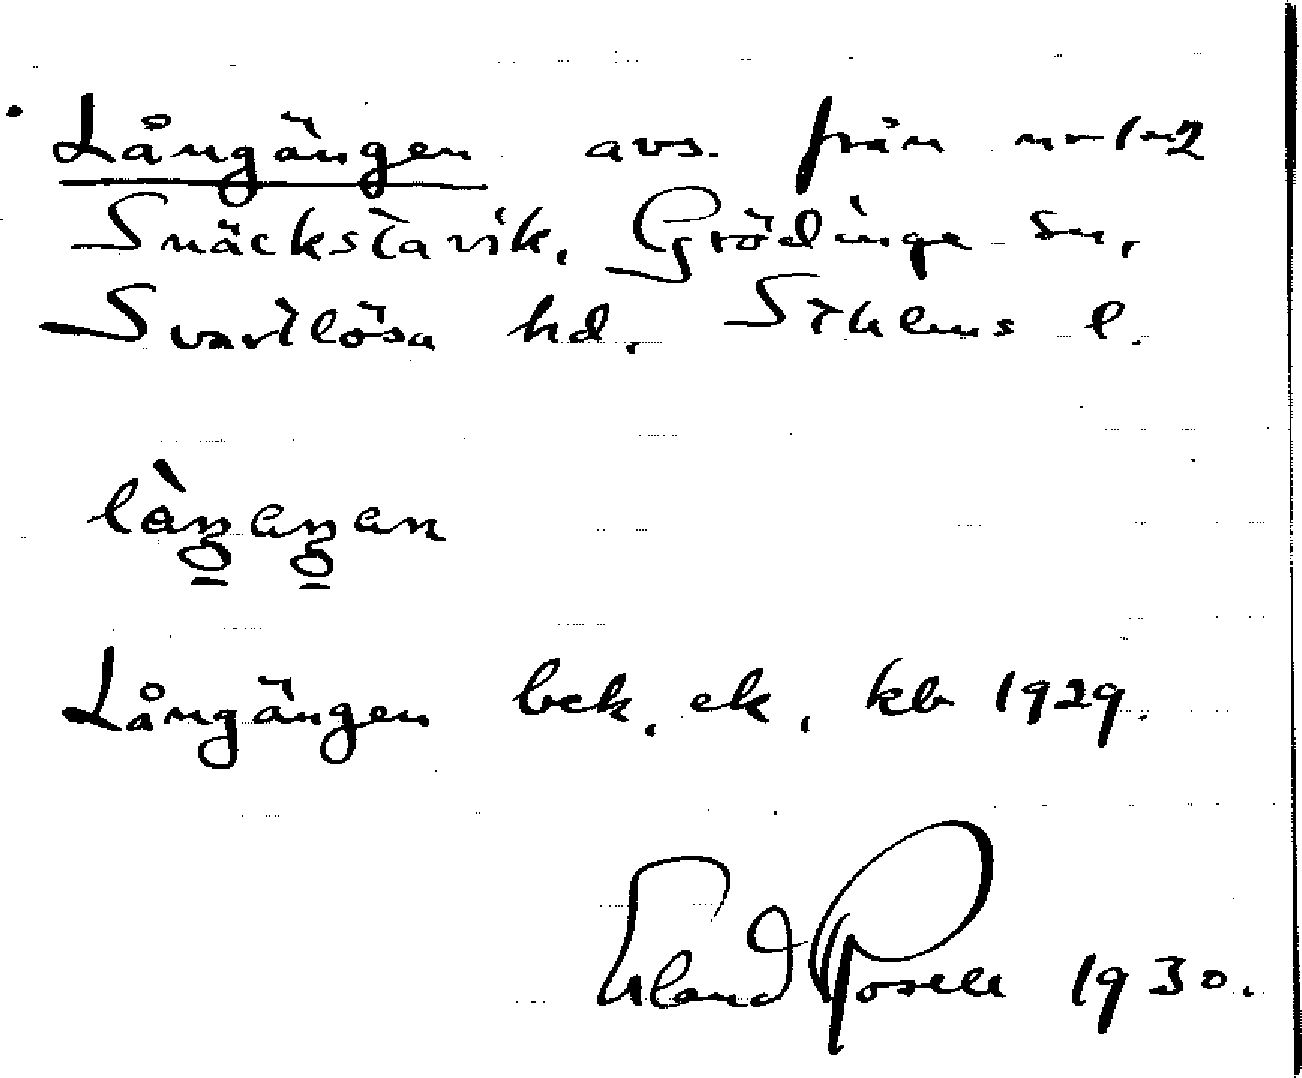 Långängen avs. från nr 1-2
Snäckstavik, Grödinge sn,
Svartlösa hd. Sthlms l.
Långängen bek. ek. kb 1929.
Erland Rosell 1930.